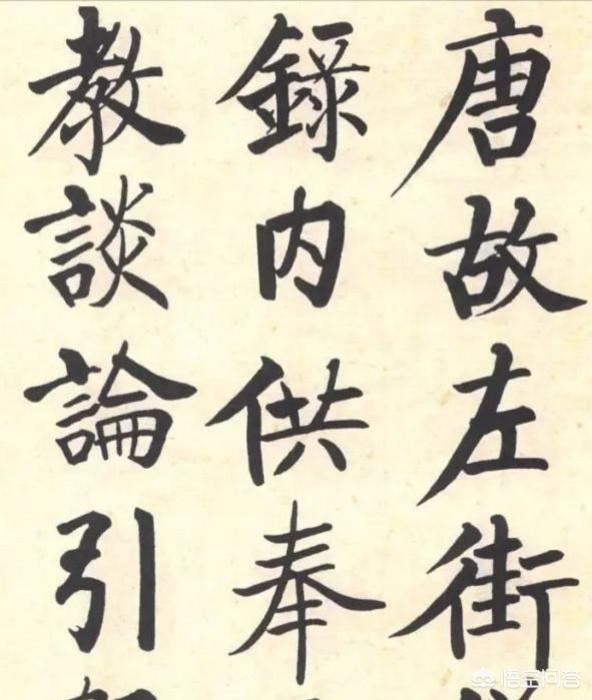 唐故左街
錄內供奉
教談論引
悟空问答